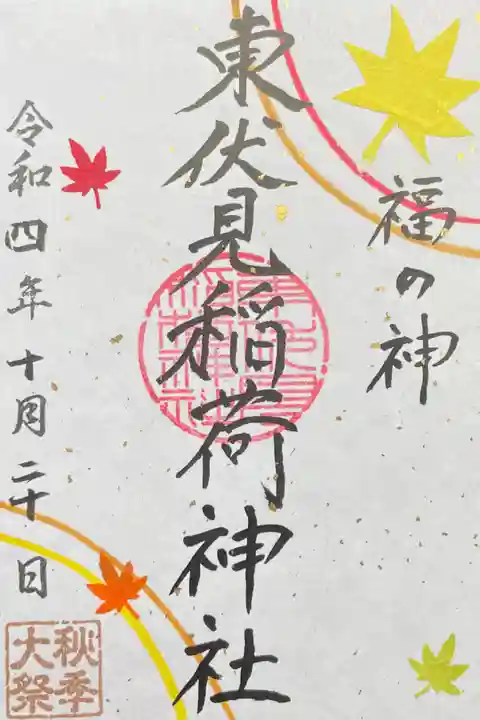 福の神
東伏見稲荷神社
令和四年十月二十日
秋季
大祭